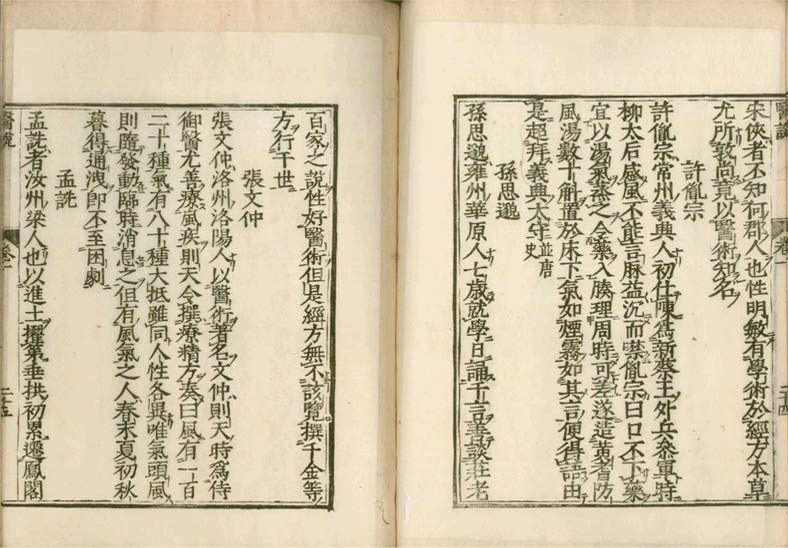 醫說 卷一 二十四
宋俠者不知何郡人也性明敏有學術於經方本草
尤所敦尚竟以醫術知名
許胤宗
許胤宗常州義興人初仕陳爲新蔡王外兵參軍時
柳太后感風不能言脉益沉而噤胤宗曰口不下藥
宜以湯氣蒸之令藥入腠理周時可差遂造黃耆防
風湯數十斛置於床下氣如煙霧如其言便得語由
是超拜義興太守並唐史
孫思邈
孫思邈雍州華原人七歲就學日誦千言善談莊老
百家之說性好醫術但是經方無不該覽撰千金等
方行于世
張文仲
張文仲洛州洛陽人以醫術著名文仲則天時爲侍
御醫尤善療風疾則天令撰療精方奏曰風有一百
二十種氣有八十種大抵雖同人性各異唯氣頭風
則隨發動臨時消息之但有風氣之人春末夏初秋
暮得通洩即不至困劇
孟詵
孟詵者汝州梁人也以進士擢第垂拱初累遷鳳閣
醫說 卷一 二十五